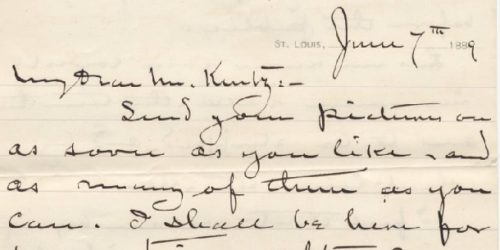 St. Louis, June 7th 1889
My Dear Mr. Kurtz:-
Send your pictures on
as soon as you like - and
as many of them as you
can. I shall be here for